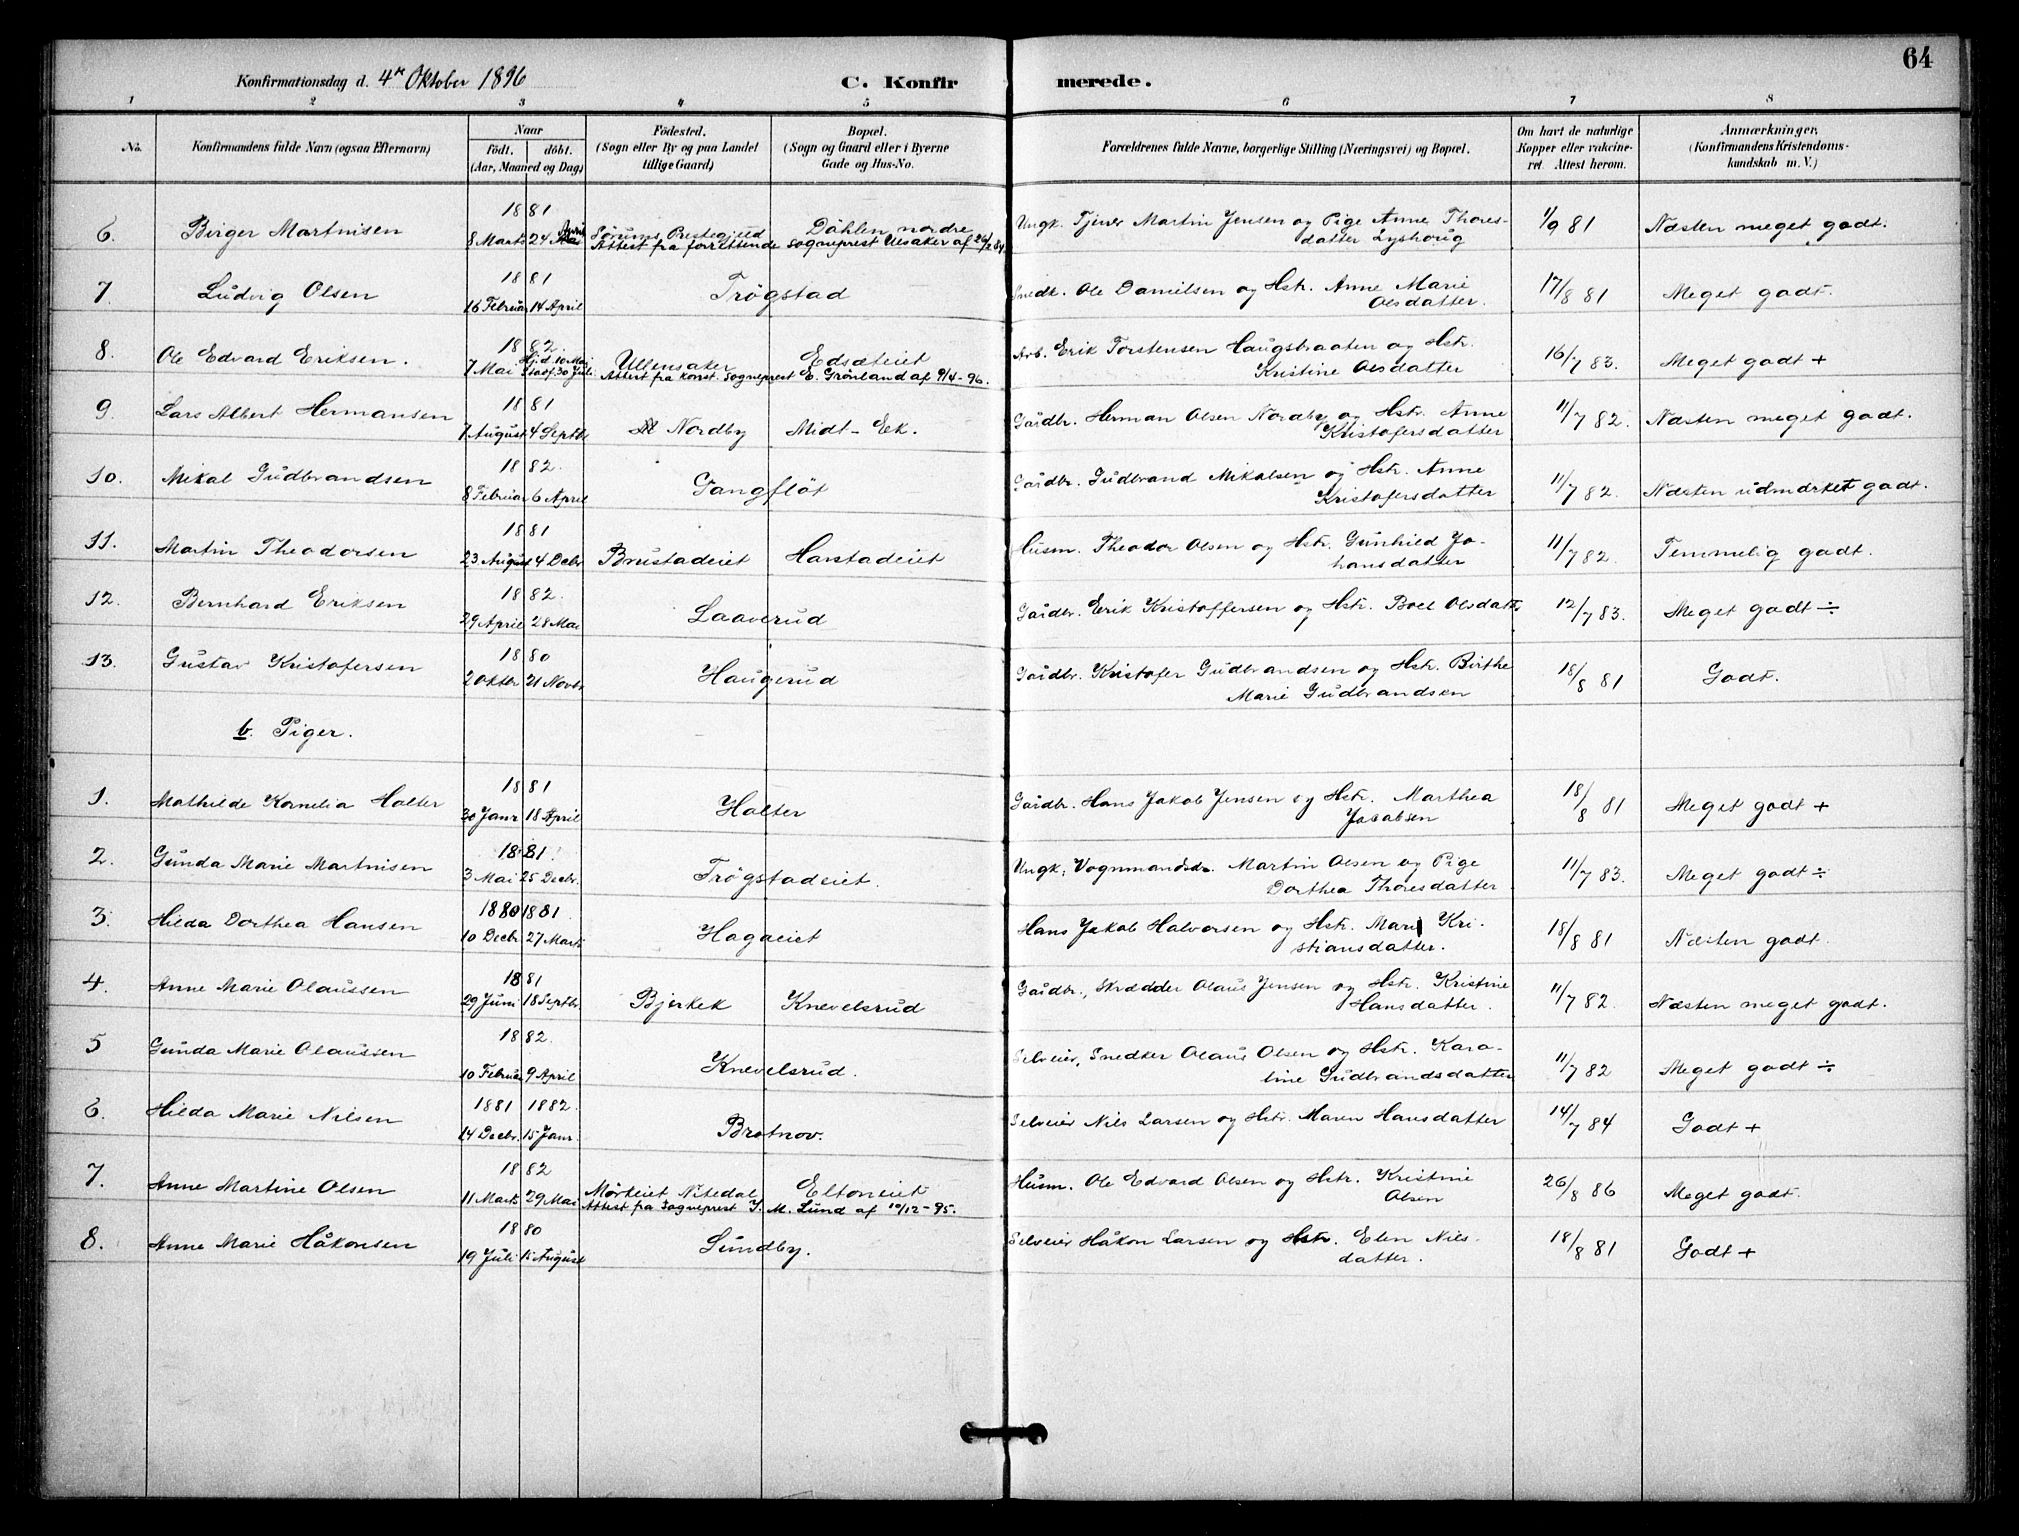 64
Konfirmationsdag d. 4de Oktober 1896
C. Konfirmerede.
1 2 3 4 5 6 7 8
No. Konfirmandens fulde Navn (ogsaa Efternavn) Naar født. døbt. (Aar, Maaned og Dag) Fødested. (Sogn eller By og paa Landet tillige Gaard) Bopæl. (Sogn og Gaard eller i Byerne Gade og Hus-No. Forældrenes fulde Navne, borgerlige Stilling (Næringsvei) og Bopæl. Om havt de naturlige Kopper eller vakcineret. Attest herom. Anmærkninger, (Konfirmandens Kristendomskundskab m. V.)
6. Birger Martinisen 1881 8 Marts 24 April Sørums Prestegjeld Dåhlen nordre Ungk. Tjener Martin Jensen og Pige Anne Thoresdatter Lyshoug 1/9 81 Næsten meget godt.
Attest fra forrettende Sogneprest Ulsaker af
7 Ludvig Olsen 1881 16 Februar 14 April Trögstad Snedk. Ole Danielsen og Hstr. Anne Marie Olsdatter. 17/8 81 Meget godt.
8. Ole Edvard Eriksen. 1882. 7 Mai Hjd. 10 Mai Stadf. 30 Juli Ullensaker Edsæteiet Arb. Erik Torstensen Haugsbraaten og Hstr. Kristine Olsdatter 16/7 83. Meget godt +
Attest fra konst. Sogneprest E. Grönland af 9/4-96.
9. Lars Albert Hermansen 1881 7 August 4 Septbr Nordby Midt-Ek. Gårdbr. Herman Olsen Nordby og Hstr. Anne Kristofersdatter 11/7 82. Næsten meget godt.
10. Mikal Gudbrandsen 1882. 8 Februar 6 April Gangflöt Gårdbr. Gudbrand Mikalsen og Hstr. Anne Kristofersdatter 11/7 82. Næsten udmærket godt.
11. Martin Theodorsen 1881 23 August 4 Decbr Brustadeiet Harstadeiet Husm. Theodor Olsen og Hstr. Gunhild Johansdatter 11/7 82. Temmelig godt.
12. Bernhard Eriksen 1882. 29 April 28 Mai Laaverud Gårdbr. Erik Kristoffersen og Hstr. Boel Olsdatt. 12/7 83. Meget godt ÷
13. Gustav Kristofersen 1880 2 Oktbr 21 Novbr Haugerud Gårdbr. Kristofer Gudbrandsen og Hstr. Birthe Marie Gudbrandsen 18/8 81 Godt.
b. Piger.
1. Mathilde Kornelia Holter 1881 30 Janr 18 April Holter Gårdbr. Hans Jakob Jensen og Hstr. Marthea Jacobsen 18/8 81 Meget godt +
2. Gunda Marie Martinisen 1881. 3 Mai 25 Decbr. Trögstadeiet. Ungk. Vognmandsdr. Martin Olsen og Pige Dorthea Thoresdatter 11/7 83. Meget godt ÷
3. Hilda Dorthea Hansen 1880 1881 10 Decbr. 27 Marts Hagaeiet Hans Jakob Halvorsen og Hstr. Mari Kristiansdatter. 18/8 81 Næsten godt.
4. Anne Marie Olaussen 1881 29 Juni 18 Septbr. Bjerkek Knevelsrud Gårdbr., Skrædder Olaus Jensen og Hstr. Kristine Hansdatter. 11/7 82 Næsten meget godt.
5 Gunda Marie Olaussen 1882. 10 Februar 9 April Knevelsrud. Selveier, Snedker Olaus Olsen og Hstr. Karoline Gudbrandsdatter 11/7 82 Meget godt ÷
6. Hilda Marie Nilsen 1881 1882. 14 Decbr. 15 Janr. Brotnov. Selveier Nils Larsen og Hstr. Maren Hansdatter 14/7 84 Godt +
7. Anne Martine Olsen 1882 11 Marts 29 Mai Mörkeiet Nitedal Eltoneiet Husm. Ole Edvard Olsen og Hstr. Kristine Olsen 26/8 86 Meget godt.
Attest fra Sogneprest J. M. Lund af 10/12-95.
8. Anne Marie Håkonsen 1880 19 Juli 15 August Lundby. Selveier Håkon Larsen og Hstr. Elen Nilsdatter. 18/8 81 Godt +